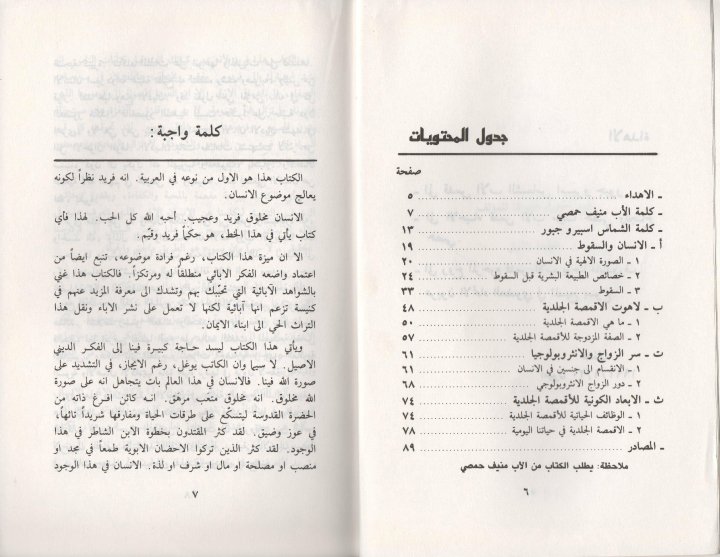 جدول المحتويات
صفحة
ـ الاهداء ٥
ـ كلمة الأب منيف حمصي ٧
ـ كلمة الشماس اسبيرو جبور ١٣
أ ـ الانسان والسقوط ١٩
١ ـ الصورة الالهية في الانسان ٢٠
٢ ـ خصائص الطبيعة البشرية قبل السقوط ٢٤
٣ ـ السقوط ٣٣
ب ـ لاهوت الاقمصة الجلدية ٤٨
١ ـ ما هي الاقمصة الجلدية ٥٠
٢ ـ الصفة المزدوجة للأقمصة الجلدية ٥٧
ت ـ سر الزواج والانثروبولوجيا ٦١
١ ـ الانقسام الى جنسين في الانسان ٦١
٢ ـ دور الزواج الانثروبولوجي ٦٨
ث ـ الابعاد الكونية للأقمصة الجلدية ٧٤
١ ـ الوظائف الحياتية للأقمصة الجلدية ٧٤
٢ ـ الاقمصة الجلدية في حياتنا اليومية ٧٨
ـ المصادر ٨٩
ملاحظة: يطلب الكتاب من الأب منيف حمصي
٦
كلمة واجبة:
الكتاب هذا هو الاول من نوعه في العربية. انه فريد نظراً لكونه
يعالج موضوع الانسان.
الانسان مخلوق فريد وعجيب. أحبه الله كل الحب. لهذا فأي
كتاب يأتي في هذا الخط، هو حكماً فريد وقيّم.
الا ان ميزة هذا الكتاب، رغم فرادة موضوعه، تنبع ايضاً من
اعتماد واضعه الفكر الابائي منطلقاً له ومرتكزاً. فالكتاب هذا غني
بالشواهد الآبائية التي تحبّبك بهم وتشدك الى معرفة المزيد عنهم في
كنيسة تزعم انها آبائية لكنها لا تعمل على نشر الاباء ونقل هذا
التراث الحي الى ابناء الايمان.
ويأتي هذا الكتاب ليسد حاجة كبيرة فينا إلى الفكر الديني
الاصيل. لا سيما وان الكاتب يوغل، رغم الايجاز، في التشديد على
صورة الله فينا. فالانسان في هذا العالم بات يتجاهل انه على صورة
الله مخلوق. انه مخلوق متعب مرهق. انه كائن افرغ ذاته من
الحضرة القدوسة ليتسكّع على طرقات الحياة ومفارقها شريداً تائهاً،
في عوز وضيق. لقد كثر المقتدون بخطوة الابن الشاطر في هذا
الوجود. لقد كثر الذين تركوا الاحضان الابوية طمعاً في مجد او
منصب او مصلحة او مال او شرف او لذة. الانسان في هذا الوجود
٧